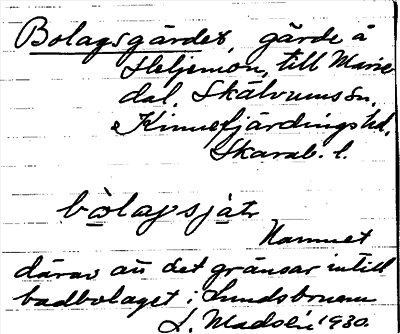 Bolagsgärdet, gärde å
Heljemon, till Marie
dal, Skälvums sn,
Kinnefjärdings hd,
Skarab. l.
bòlagsjätr
Namnet
därav att det gränsar intill
badbolaget i Lundsbrunn
L. Madsén 1930